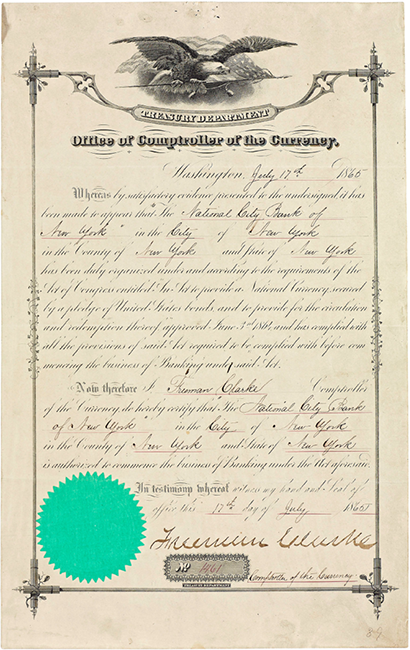 TREASURY DEPARTMENT
Office of Comptroller of the Currency.
Washington, July 17th 1865
Whereas by satisfactory evidence presented to the undersigned, it has
been made to appear that "The National City Bank of
New York" in the City of New York
in the County of New York and State of New York
has been duly organized under and according to the requirements of the
Act of Congress entitled "An Act to provide a National Currency, secured
by a pledge of United States bonds, and to provide for the circulation
and redemption thereof," approved June 3rd 1864, and has complied with
all the provisions of said Act required to be complied with before com-
mencing the business of Banking under said Act.
Now therefore I Freeman Clarke Comptroller
of the Currency, do hereby certify that "The National City Bank
of New York" in the City of New York
in the County of New York and State of New York
is authorized to commence the business of Banking under the Act aforesaid.
In testimony whereof witness my hand and Seal of
office this 17th day of July 1865
Freeman Clarke
No 1461
Comptroller of the Currency
TREASURY DEPARTMENT